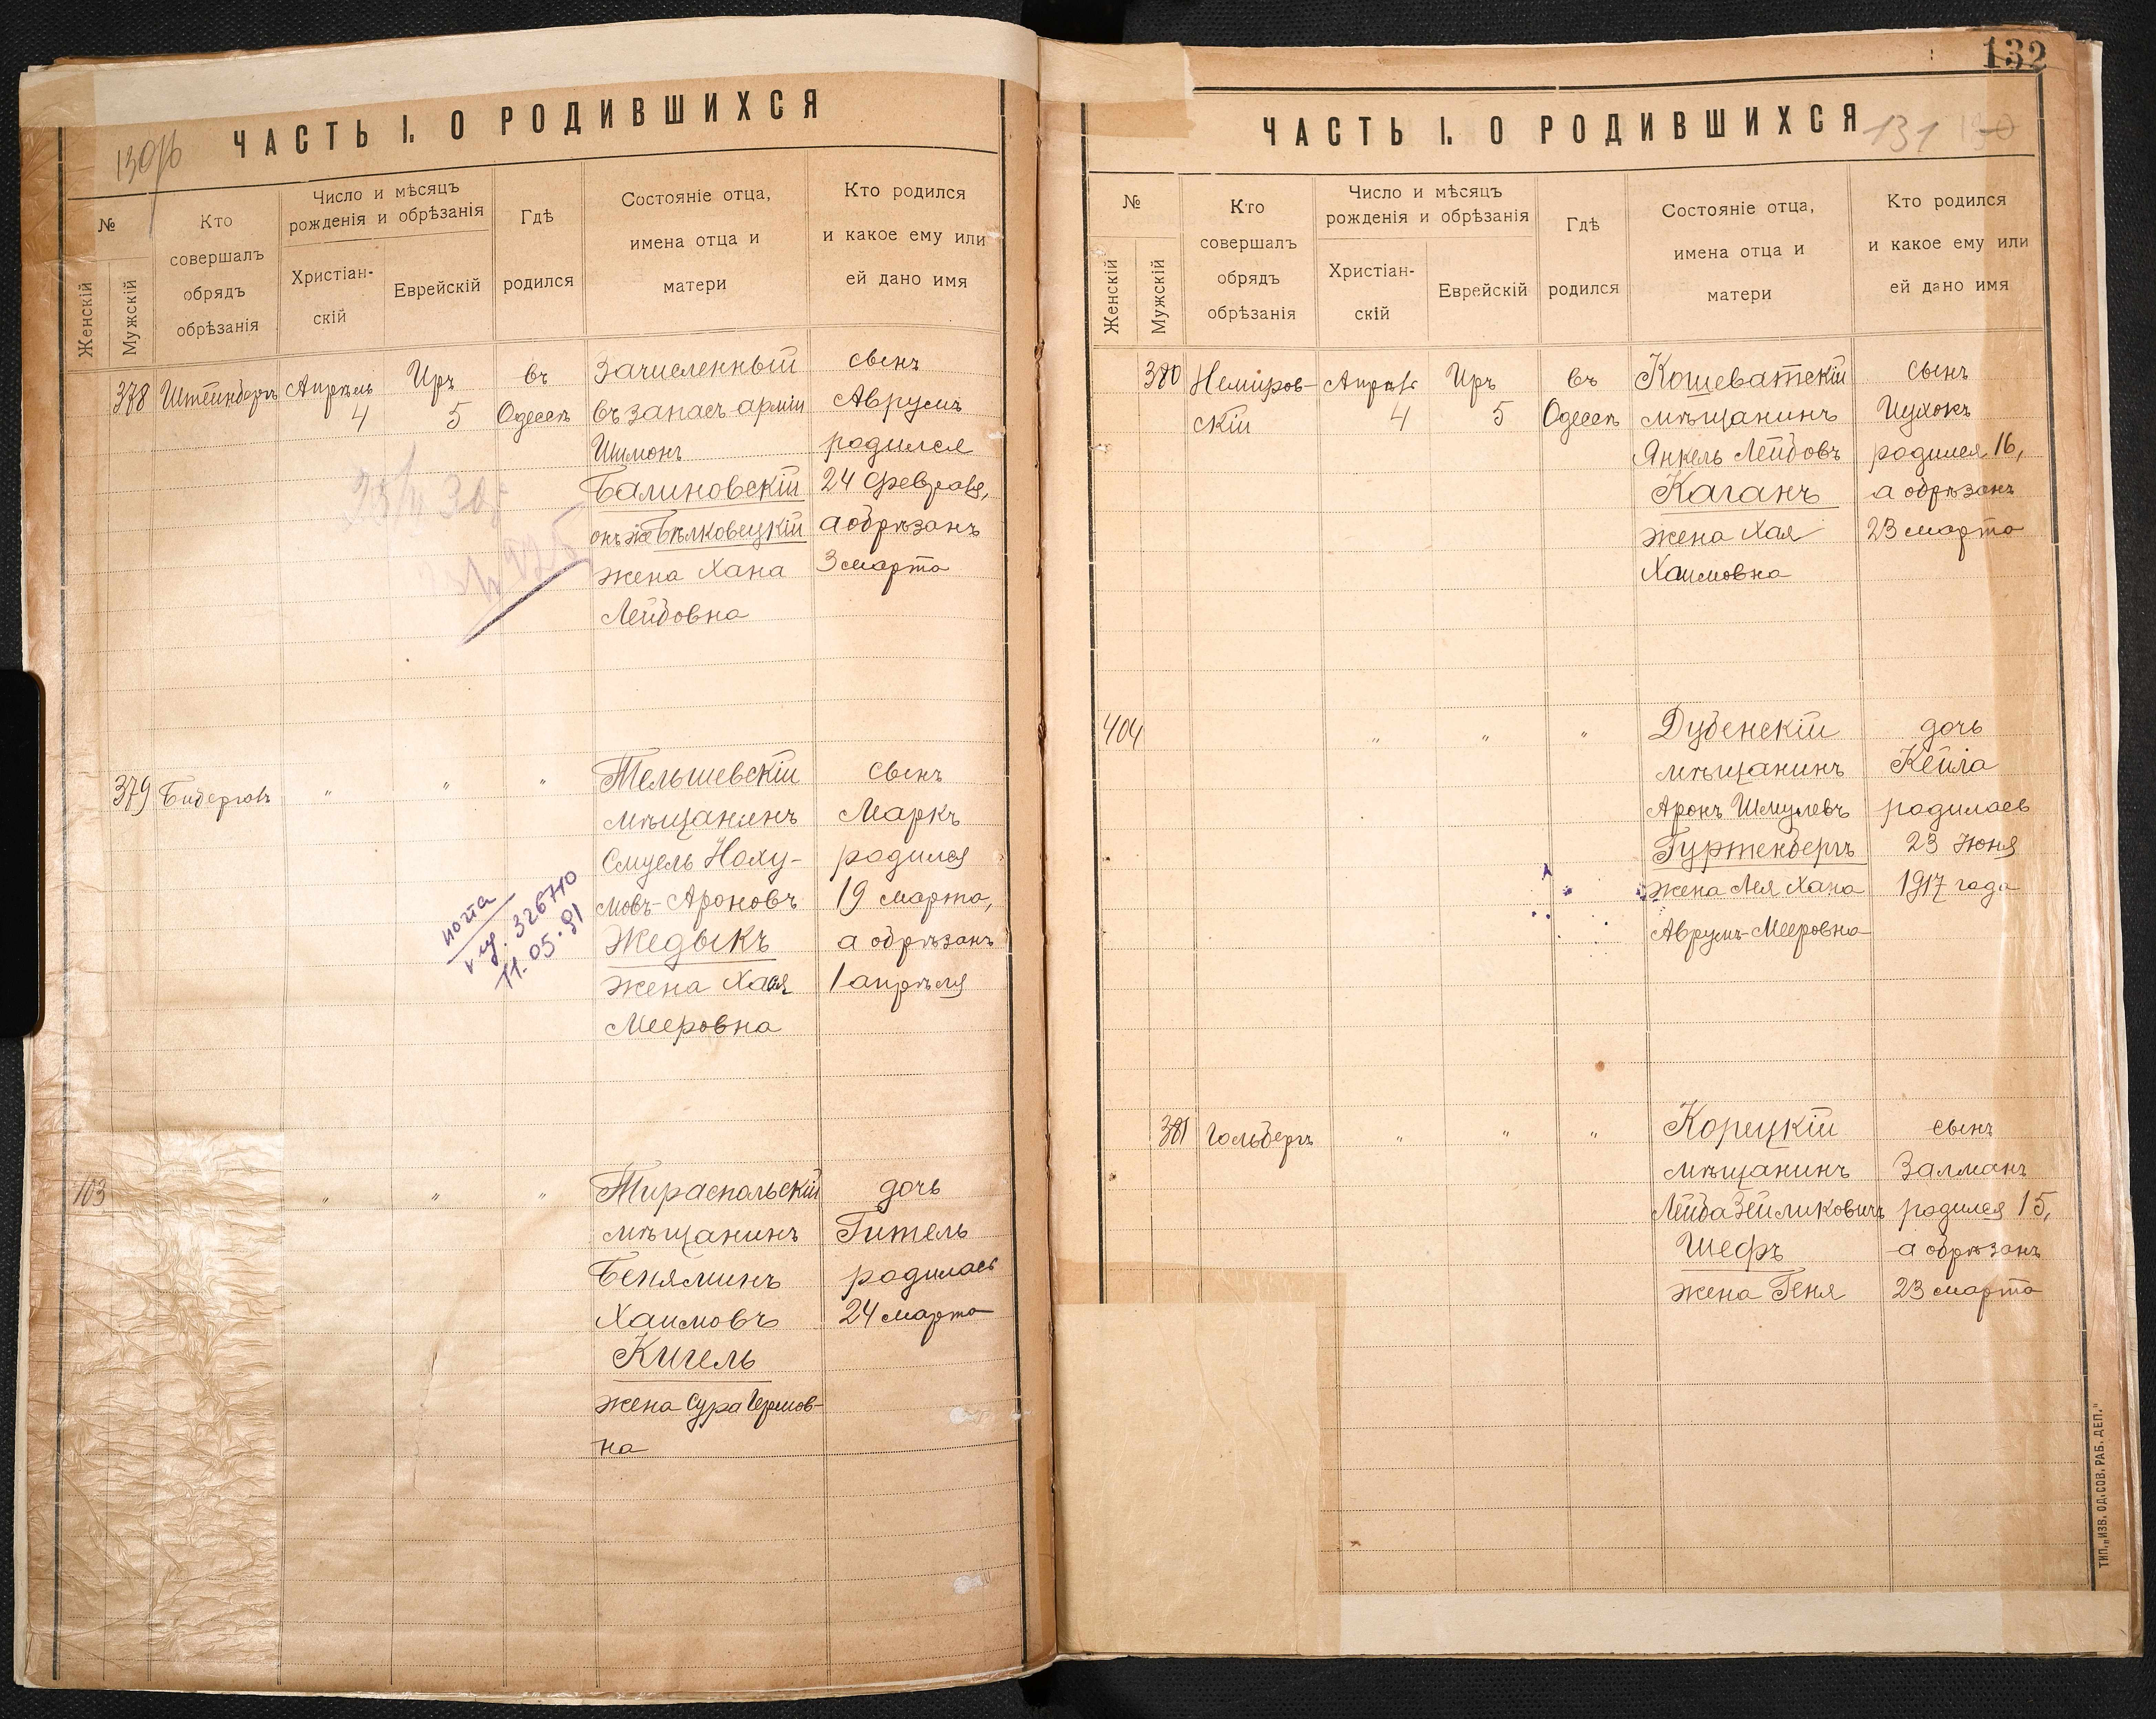 ЧАСТЬ I. О РОДИВШИХСЯ
130об
№
Женскій
Мужскій
Кто
совершалъ
обрядъ
обрѣзанія
Число и мѣсяцъ
рожденія и обрѣзанія
Христіан-
скій
Еврейскій
Гдѣ
родился
Состояніе отца,
имена отца и
матери
Кто родился
и какое ему или
ей дано имя
378
Штейнбергъ
Апрѣль
4
Иръ
5
въ
Одессѣ
Зачисленный
въ запасъ арміи
Шимонъ
Балиновскій
онъ же Бѣлковецкій
жена Хана
Лейбовна
сынъ
Аврумъ
родился
24 февраля,
а обрѣзанъ
3 марта
379
"
"
"
Тельшевскій
мѣщанинъ
Смуель Наху-
мовъ-Ароновъ
Жедыкъ
жена Хая
Мееровна
сынъ
Маркъ
родился
19 марта,
а обрѣзанъ
1 апрѣля
326710
11.05.91
103
"
"
"
Тираспольскій
мѣщанинъ
Беняминъ
Хаимовъ
Кигель
жена Сура
на
дочь
Гитель
родилась
24 марта
132
ЧАСТЬ I. О РОДИВШИХСЯ
131 130
№
Женскій
Мужскій
Кто
совершалъ
обрядъ
обрѣзанія
Число и мѣсяцъ
рожденія и обрѣзанія
Христіан-
скій
Еврейскій
Гдѣ
родился
Состояніе отца,
имена отца и
матери
Кто родился
и какое ему или
ей дано имя
380
Неміров-
скій
Апрѣль
4
Иръ
5
въ
Одессѣ
Кошеватскій
мѣщанинъ
Янкель Лейбовъ
Каганъ
жена Хая
Хаимовна
сынъ
Ицхокъ
родился 16,
а обрѣзанъ
23 марта
404
"
"
"
Дубенскій
мѣщанинъ
Аронъ Шмулевъ
Гуртенбергъ
жена Лея Хана
Аврумъ-Мееровна
дочь
Кейла
родилась
23 Іюня
1917 года
381
Гольбергъ
"
"
"
Корецкій
мѣщанинъ
Лейба Зейликовичъ
Шефъ
жена Геня
сынъ
Залманъ
родился 15,
а обрѣзанъ
23 марта
ТИП. „ИЗВ. ОД. СОВ. РАБ. ДЕП."